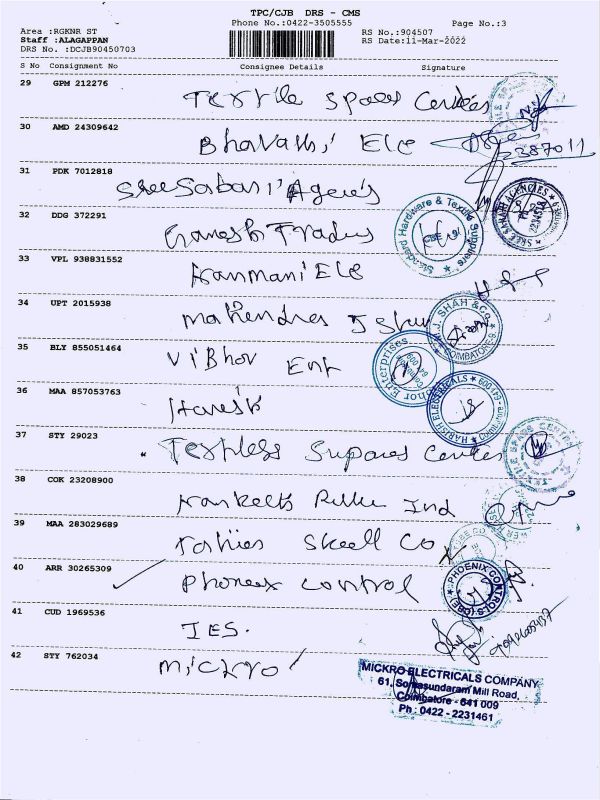 TPC/CJB DRS - CMS
Phone No.:0422-3505555
Page No.:3
Area :RGKNR ST
Staff :ALAGAPPAN
DRS No. :DCJB90450703
RS No.:904507
RS Date:11-Mar-2022
S No Consignment No Consignee Details Signature
29 GPM 212276 Textile Spares Centres
30 AMD 24309642 Bhavathi Ele
2387011
31 PDK 7012818 Sree Sabari Agencies
SREE SABARI AGENCIES
32 DDG 372291 Ganesh Traders
Standard Hardware & Textile Suppliers
CBE
33 VPL 938831552 Kanmani Ele
34 UPT 2015938 Mahendra J Shah
J. SHAH & Co.
COIMBATORE
35 BLY 855051464 Vibhor Ent
Enterprises
36 MAA 857053763 Harish
HARISH ELECTRICALS
37 STY 29023 Centre
38 COK 23208900 Ind
39 MAA 283029689 Co
40 ARR 30265309 Phonex Control
PHOENIX CONTROLS (CBE)
41 CUD 1969536 IES.
42 STY 762034 Mickro
MICKRO ELECTRICALS COMPANY
61, Somasundaram Mill Road,
Coimbatore - 641 009
Ph : 0422 - 2231461